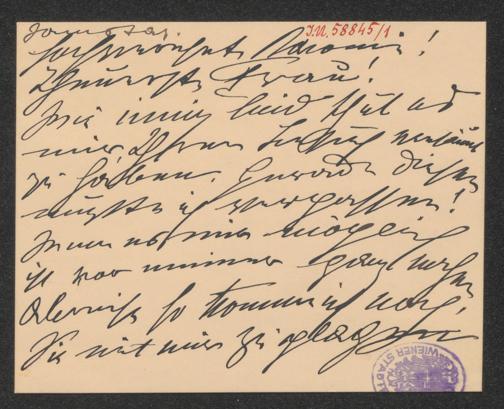 Samstag.
I.N. 58845/1
Hochverehrte Baronin!
Theuerste Frau!
Wie innig leid thut es
mir Ihren Besuch versäumt
zu haben. Gerade diesen
mußte ich vergessen!
Wenn es mir möglich
ist vor meiner ganz nahen
Abreise so komme ich noch,
Sie mit mir zu plagen
WIENER STADT